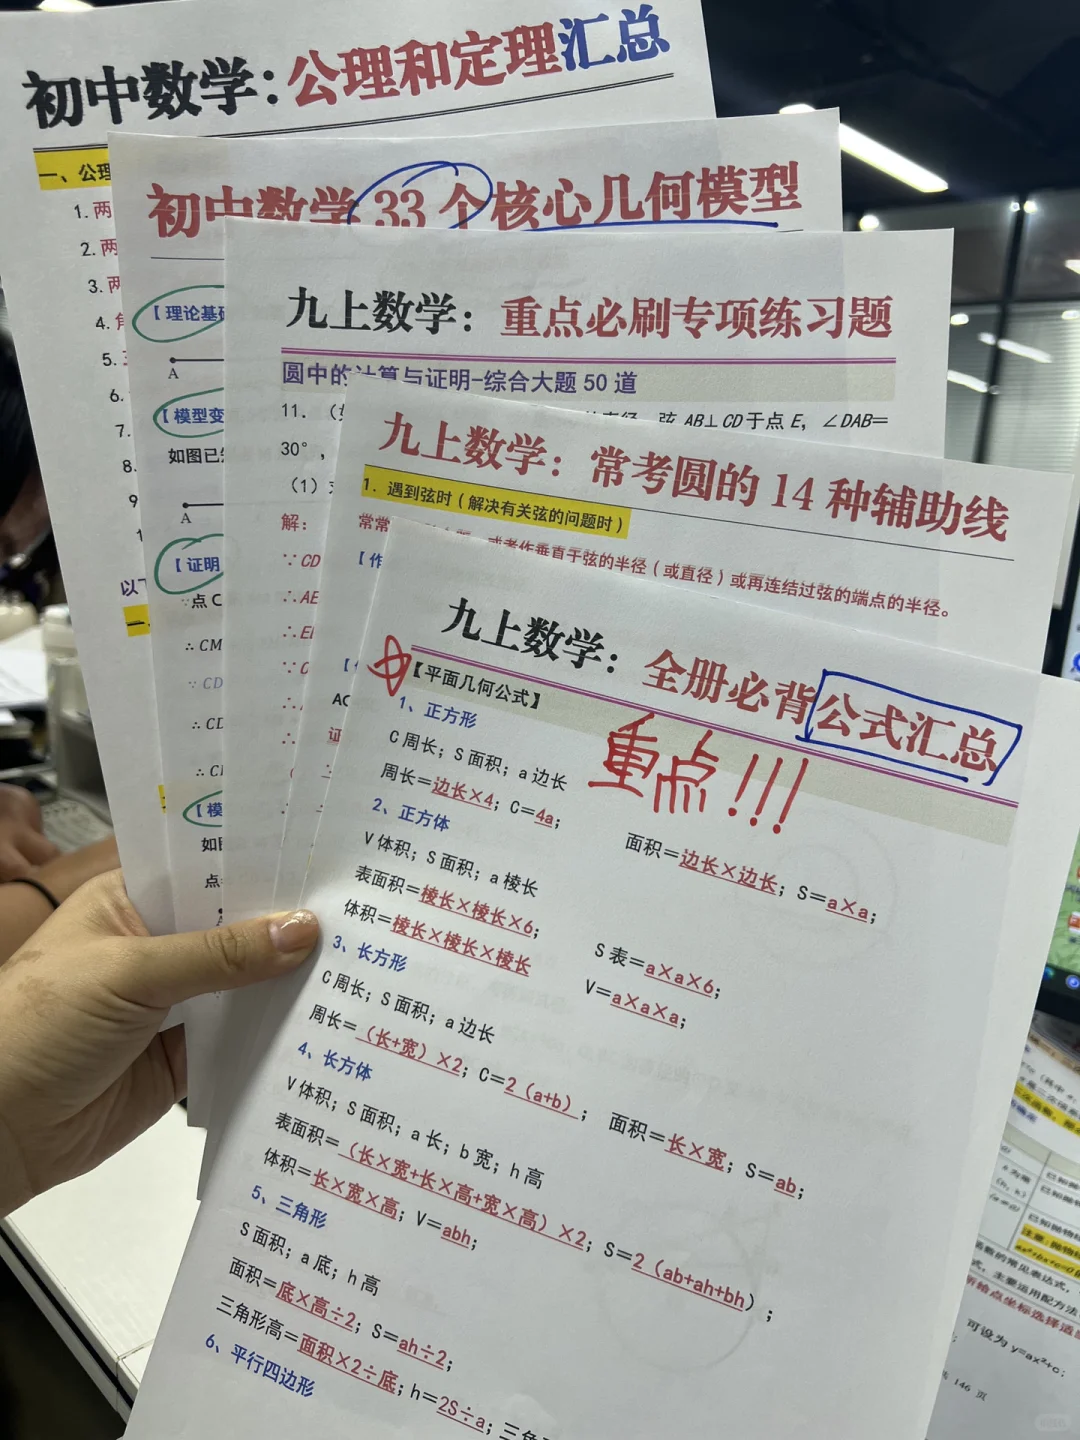 初中数学：公理和定理汇总
一、公理
1. 两
2. 两
3. 两
4. 角
5. 三
6.
7.
8.
9
以下
二、
初中数学 33 个核心几何模型
【理论基础
A
【模型变
如图已知
A
【证明
∵点 C
∴ CM
∵ CD
∴ CD
∴ CI
【模
如图
点
九上数学：重点必刷专项练习题
圆中的计算与证明-综合大题 50 道
11. （如 直径，弦 AB⊥CD 于点 E，∠DAB＝
30°，
（1）求
解：
∵ CD
∴ AE
∴ EI
∵ C
∴
∴
证
九上数学：常考圆的 14 种辅助线
1. 遇到弦时（解决有关弦的问题时）
常常 或者作垂直于弦的半径（或直径）或再连结过弦的端点的半径。
【作
AC
九上数学：全册必背公式汇总
【平面几何公式】
重点!!!
1、正方形
C 周长；S 面积；a 边长
周长＝边长×4；C＝4a； 面积＝边长×边长；S＝a×a；
2、正方体
V 体积；S 面积；a 棱长
表面积＝棱长×棱长×6； S 表＝a×a×6；
体积＝棱长×棱长×棱长 V＝a×a×a；
3、长方形
C 周长；S 面积；a 边长
周长＝（长+宽）×2；C＝2（a+b）； 面积＝长×宽；S＝ab；
4、长方体
V 体积；S 面积；a 长；b 宽；h 高
表面积＝（长×宽+长×高+宽×高）×2；S＝2（ab+ah+bh）；
体积＝长×宽×高；V＝abh；
5、三角形
S 面积；a 底；h 高
面积＝底×高÷2；S＝ah÷2；
三角形高＝面积×2÷底；h＝2S÷a；三角
6、平行四边形
可设为 y=ax²+c；
146 页